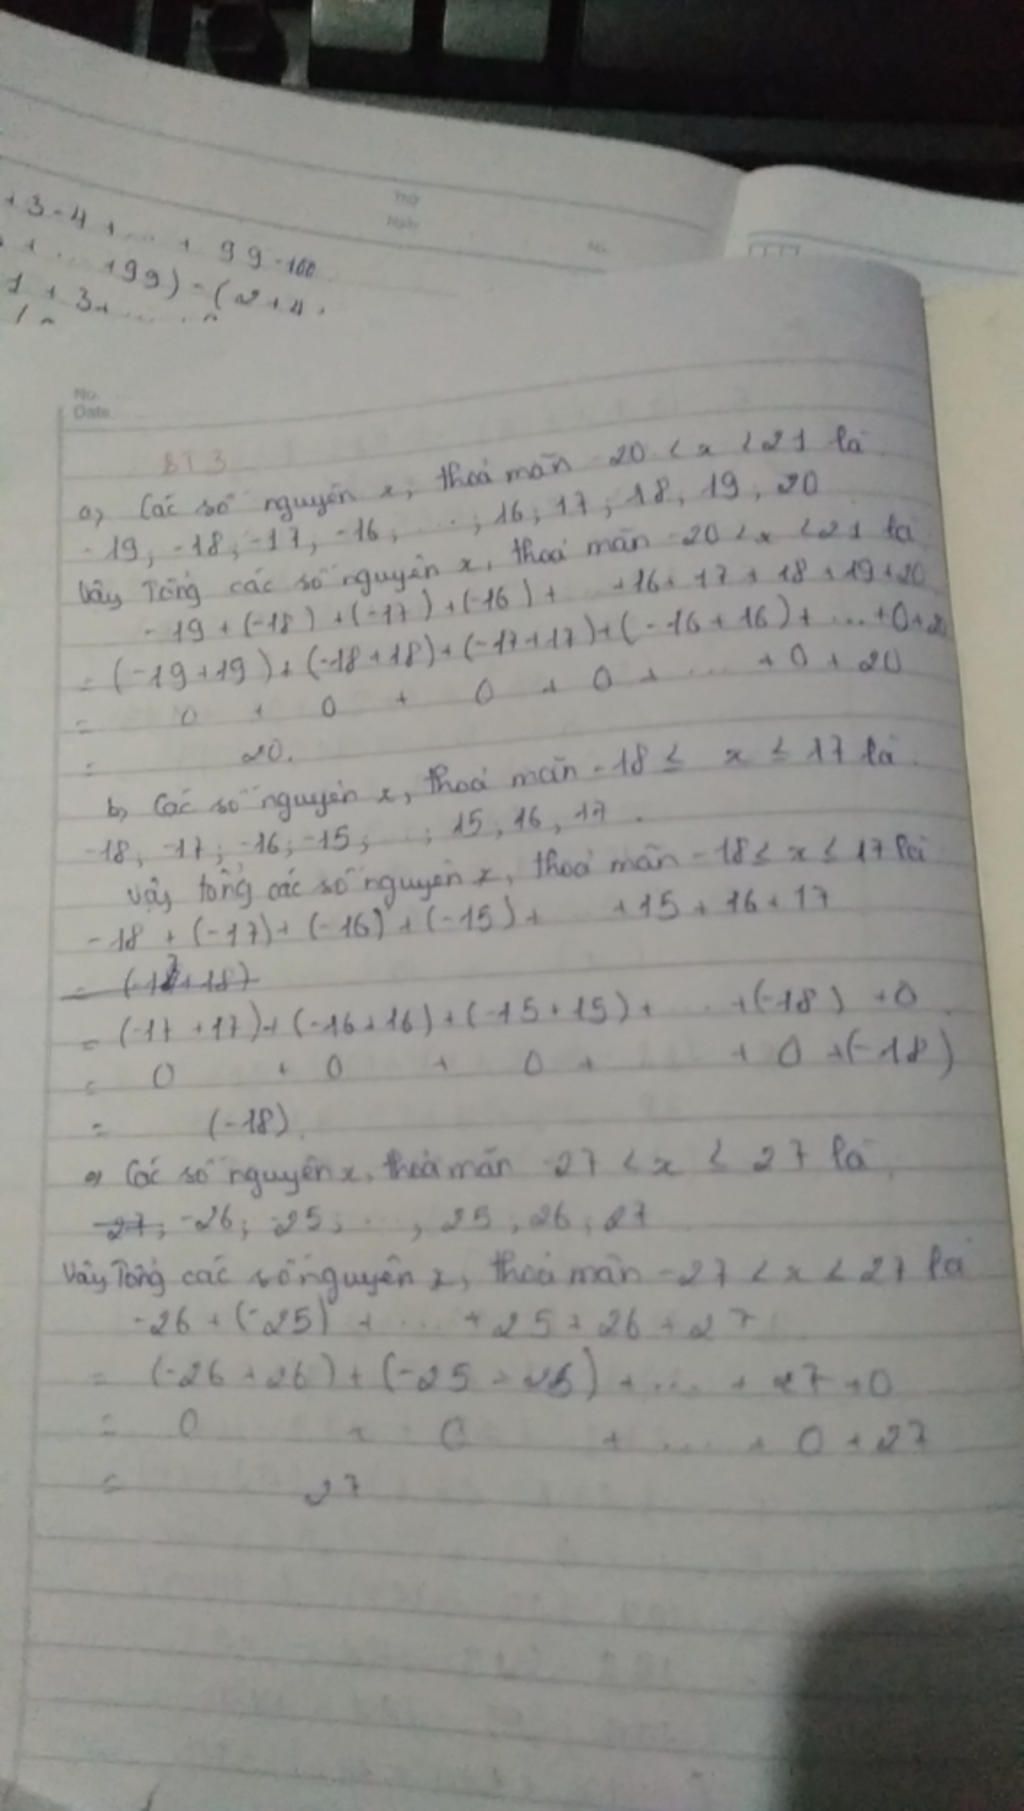 +3-4+...+99-100
+...+99)-(2+4+
1+3+......
No.
Date
BT3
a, Các số nguyên x, thoả mãn -20 < x < 21 là
-19, -18; -17; -16; ...; 16; 17; 18, 19, 20
Vậy Tổng các số nguyên x, thoả mãn -20 < x < 21 là
-19 + (-18) + (-17) + (-16) + ... +16+ 17 + 18 + 19 + 20
= (-19+19) + (-18+18) + (-17+17) + (-16+16) + ... +0+20
= 0 + 0 + 0 + 0 + ... + 0 + 20
= 20.
b, Các số nguyên x, thoả mãn -18 ≤ x ≤ 17 là
-18, -17; -16; -15; ...; 15, 16, 17.
Vậy tổng các số nguyên x, thoả mãn -18 ≤ x ≤ 17 là
-18 + (-17) + (-16) + (-15) + ... +15 + 16 + 17
= (-17 +17) + (-16+16) + (-15+15) + ... +(-18) +0
= 0 + 0 + 0 + + 0 +(-18)
= (-18).
Các số nguyên x, thoả mãn -27 < x ≤ 27 là
-27; -26; -25; ..., 25, 26, 27
Vậy Tổng các số nguyên x, thoả mãn -27 < x < 27 là
-26 + (-25) + ... + 25 + 26 + 27
= (-26 + 26) + (-25 + 25) + ... + 27 +0
= 0 + 0 + ... + 0 + 27
= 27